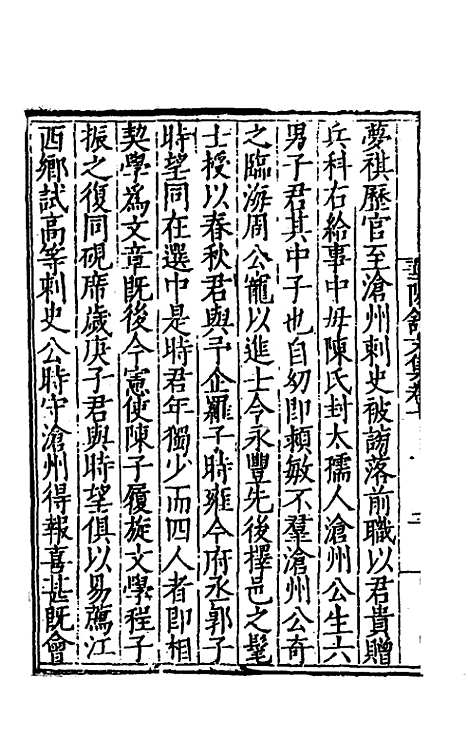 夢祺歷官至滄州刺史被謫落前職以君貴贈
兵科右給事中母陳氏封太孺人滄州公生六
男子君其中子也自幼即頴敏不羣滄州公奇
之臨海周公寵以進士令永豐先後擇邑之髦
士授以春秋君與尹企羅子時雍今府丞郭子
時望同在選中是時君年獨少而四人者即相
契學爲文章既後今憲使陳子履旋文學程子
振之復同硯席歲庚子君與時望俱以易薦江
西鄉試高等刺史公時守滄州得報喜甚既會
文集卷